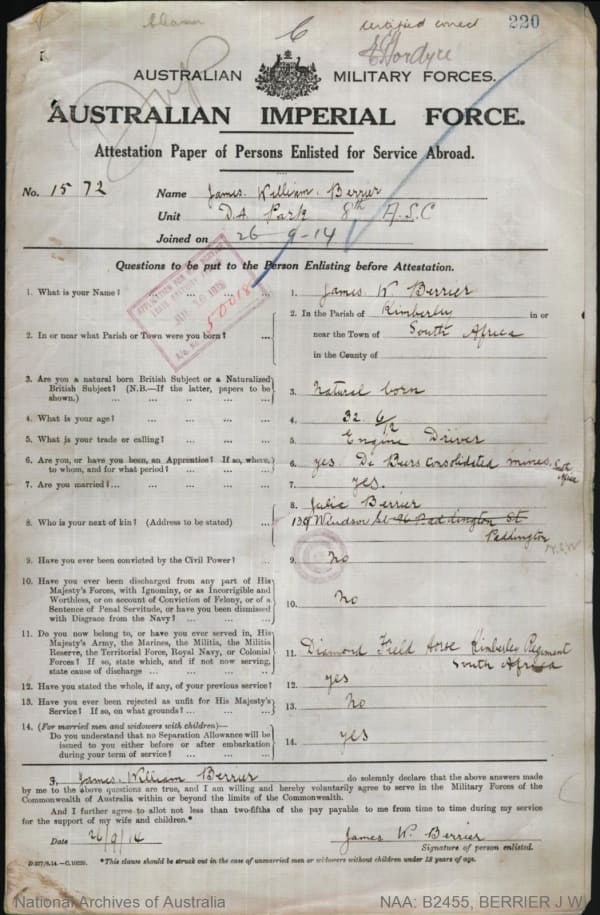 certified correct
220
AUSTRALIAN MILITARY FORCES.
AUSTRALIAN IMPERIAL FORCE.
Attestation Paper of Persons Enlisted for Service Abroad.
No. 1572 Name James William Berrier
Unit D.A. Park 8th A.S.C
Joined on 26 9-14
Questions to be put to the Person Enlisting before Attestation.
1. What is your Name? ... ... ... 1. James W Berrier
2. In or near what Parish or Town were you born? ... 2. In the Parish of Kimberley in or
near the Town of South Africa
in the County of
3. Are you a natural born British Subject or a Naturalized
British Subject? (N.B.—If the latter, papers to be
shown.) ... ... ... ... 3. Natural born
4. What is your age? ... ... ... 4. 32 6/12
5. What is your trade or calling? ... ... ... 5. Engine Driver
6. Are you, or have you been, an Apprentice? If so, where,
to whom, and for what period? ... ... ... 6. yes. De Beers consolidated mines, South Africa
7. Are you married? ... ... ... ... 7. yes.
8. Who is your next of kin? (Address to be stated) ... 8. Julia Berrier
139 Windsor St Paddington St
Paddington
N.S.W
9. Have you ever been convicted by the Civil Power? ... 9. No
10. Have you ever been discharged from any part of His
Majesty's Forces, with Ignominy, or as Incorrigible and
Worthless, or on account of Conviction of Felony, or of a
Sentence of Penal Servitude, or have you been dismissed
with Disgrace from the Navy? ... ... 10. No
11. Do you now belong to, or have you ever served in, His
Majesty's Army, the Marines, the Militia, the Militia
Reserve, the Territorial Force, Royal Navy, or Colonial
Forces? If so, state which, and if not now serving,
state cause of discharge ... ... ... 11. Diamond Field Horse Kimberley Regiment
South Africa
12. Have you stated the whole, if any, of your previous service? 12. yes
13. Have you ever been rejected as unfit for His Majesty's
Service? If so, on what grounds? ... ... 13. No
14. (For married men and widowers with children)—
Do you understand that no Separation Allowance will be
issued to you either before or after embarkation
during your term of service? ... ... 14. yes
I, James William Berrier do solemnly declare that the above answers made
by me to the above questions are true, and I am willing and hereby voluntarily agree to serve in the Military Forces of the
Commonwealth of Australia within or beyond the limits of the Commonwealth.
And I further agree to allot not less than two-fifths of the pay payable to me from time to time during my service
for the support of my wife and children.*
Date 26/9/14 James W. Berrier
Signature of person enlisted.
D.277/8.14.—C.10220. *This clause should be struck out in the case of unmarried men or widowers without children under 18 years of age.
National Archives of Australia NAA: B2455, BERRIER J W